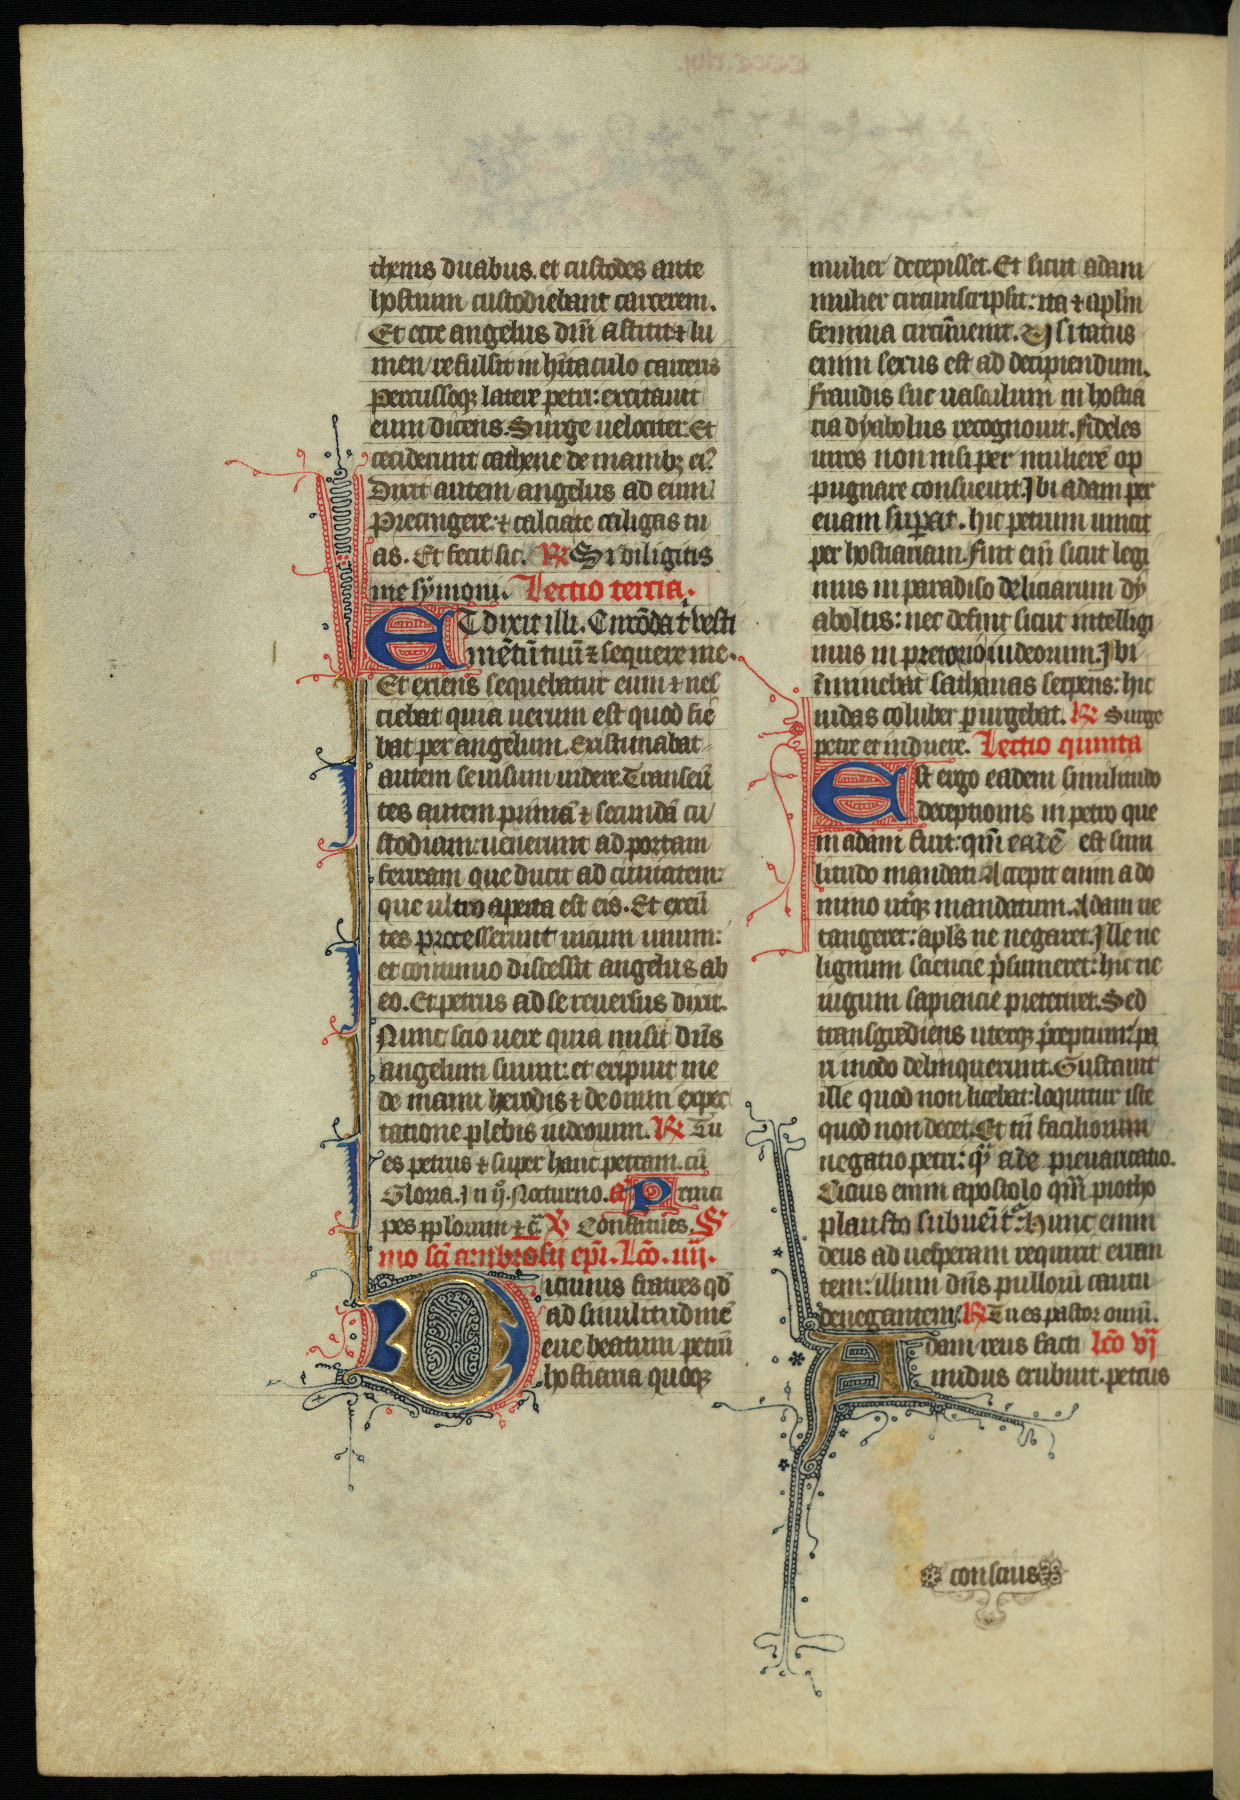 thenis duabus. et custodes ante
hostium custodiebant carcerem.
Et ecce angelus dñi astitit ⁊ lu
men refulsit in hitaculo carceris
percussoqꝫ latere petri: excitauit
eum dicens. Surge uelociter. Et
ceciderunt cathene de manibꝫ ei?
Dixit autem angelus ad eum
Precingere: ⁊ calciate caligas tu
as. Et fecit sic. ℟ Si diligitis
me symon. Lectio tercia.
ET dixit illi. Circũda t̉ vesti
mẽtũ tuũ ⁊ sequere me.
Et exiens sequebatur eum ⁊ nes
ciebat quia uerum est quod fie
bat per angelum. Existimabat
autem se uisum uidere. Transeũ
tes autem primã ⁊ secundã cu
stodiam: uenerunt ad portam
ferream que ducit ad ciuitatem:
que ultro aperta est eis. Et exeũ
tes processerunt uicum unum:
et continuo discessit angelus ab
eo. Et petrus ad se reuersus dixit.
Nunc scio uere quia misit dñs
angelum suum: et eripuit me
de manu herodis ⁊ de omni expec
tatione plebis iudeorum. ℟ Tu
es petrus ⁊ super hanc petram. cũ
Gloria. In ij. Nocturno. a Princi
pes pplorum ⁊ c̃ ℣ Constitues. S
mo sc̃i ambrosij epi. Lc̃o. iiij.
Dicimus fratres qd̃
ad similitudinẽ
eue beatum petrũ
hostiaria quoqꝫ
mulier decepisset. Et sicut adam
mulier circumscripsit: ita ⁊ aplm̃
femina circũuenit. Vsitatus
enim sexus est ad decipiendum.
Fraudis sue uasculum in hostia
ria dyabolus recognouit. fideles
uiros non nisi per mulierẽ op
pugnare consueuit. Ibi adam per
euam suꝑat. hic petrum uincit
per hostiariam. Fuit eñ sicut legi
mus in paradiso deliciarum dy
abolus: nec defuit sicut intelligi
mus in pretorio iudeorum. Ibi
iminebat sathanas serpens: hic
iudas coluber ꝑurgebat. ℟ Surge
petre et induere. Lectio quinta
Est ergo eadem similitudo
deceptionis in petro que
in adam fuit: qm̃ eadẽ est simi
litudo mandati. Accepit enim a do
mino utqꝫ mandatum. Adam ne
tangeret: apl̃s ne negaret. Ille ne
lignum sciencie p̃sumeret: hic ne
uigum sapiencie preteriret. Sed
transgrediens uterqꝫ p̃ceptum: pa
ri modo delinquerunt. Gustauit
ille quod non licebat: loquitur iste
quod non decet. Et tñ faciliorum
negatio petri: q̃ ade preuaricatio.
Cicius enim apostolo qm̃ protho
plausto subueñt.ᵃ Hunc enim
deus ad uesperam requirit erran
tem: illum dñs pullorũ cantu
denegantem. ℟ Tu es pastor ouiũ.
Adam reus facti lc̃o vj̃
nudus erubuit. petrus
conscius